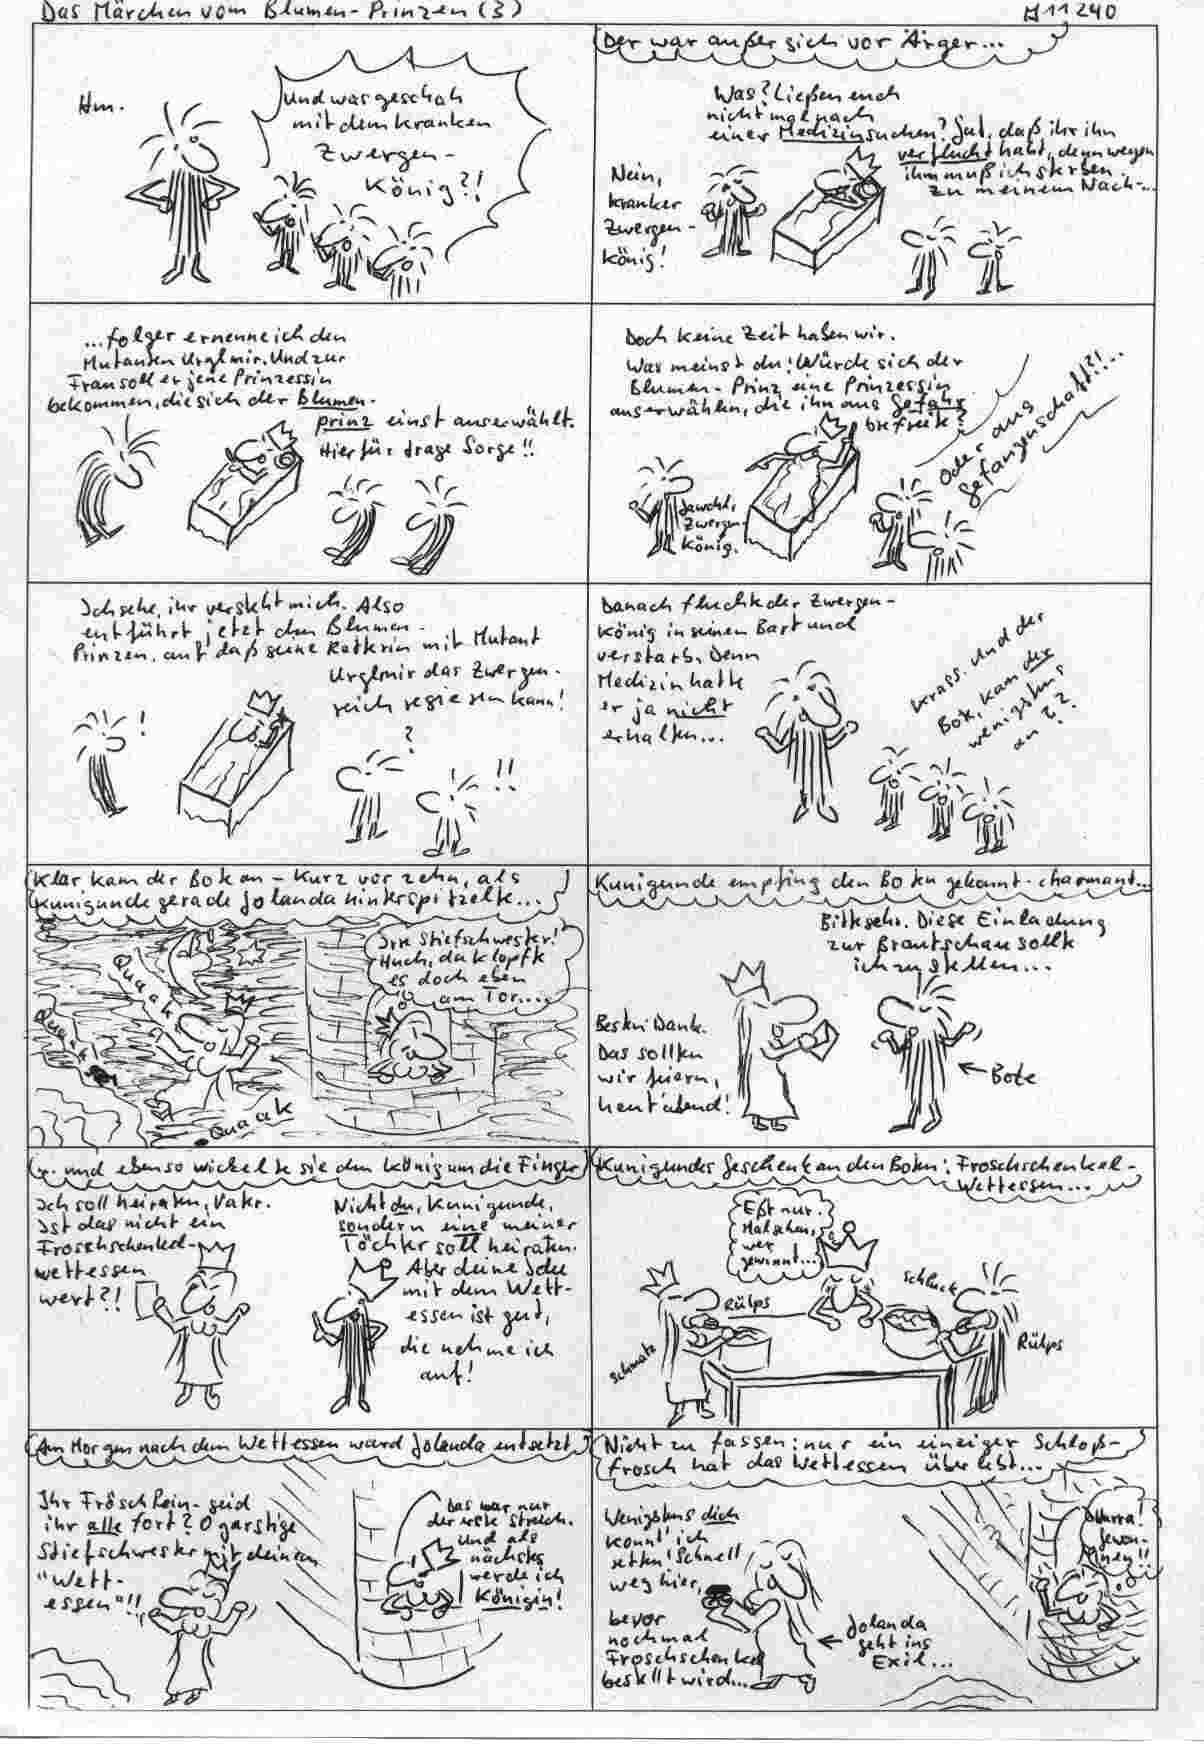 Das Märchen vom Blumen-Prinzen (3)
11240
Hm.
Und was geschah
mit dem kranken
Zwergen-
König?!
Der war außer sich vor Ärger...
Was? Ließen euch
nicht mal nach
einer Medizin suchen? Gut, daß ihr ihn
verflucht habt, denn wegen
ihm muß ich sterben.
Zu meinem Nach-...
Nein,
kranker
Zwergen-
König!
...folger ernenne ich den
Mutanten Urglmir. Und zur
Frau soll er jene Prinzessin
bekommen, die sich der Blumen-
prinz einst auserwählt.
Hierfür trage Sorge!!
Doch keine Zeit haben wir.
Was meinst du: Würde sich der
Blumen-Prinz eine Prinzessin
auserwählen, die ihn aus Gefahr
befreite?
Oder aus
Gefangenschaft?!...
Jawohl,
Zwergen-
König.
Ich sehe, ihr versteht mich. Also
entführt jetzt den Blumen-
Prinzen, auf daß seine Retterin mit Mutant
Urglmir das Zwergen-
reich regieren kann!
!
?
!!
Danach fluchte der Zwergen-
König in seinen Bart und
verstarb. Denn
Medizin hatte
er ja nicht
erhalten...
Krass. Und der
Bote, kam der
wenigstens
an??
Klar kam der Bote an - kurz vor zehn, als
Kunigunde gerade Jolanda hinterspitzelte...
Quaak
Quaak
Quaak
Irre Stiefschwester!
Huch, da klopfte
es doch eben
am Tor...
Kunigunde empfing den Boten gekonnt-charmant...
Bittesehr. Diese Einladung
zur Brautschau sollte
ich zustellen...
Besten Dank.
Das sollten
wir feiern,
heut' abend!
← Bote
... und ebenso wickelte sie den König um die Finger
Ich soll heiraten, Vater.
Ist das nicht ein
Froschschenkel-
wettessen
wert?!
Nicht du, Kunigunde,
sondern eine meiner
Töchter soll heiraten.
Aber deine Idee
mit dem Wett-
essen ist gut,
die nehme ich
auf!
Kunigundes Geschenk an den Boten: Froschschenkel-
Wettessen...
Eßt nur.
Mal sehen,
wer
gewinnt...
Schmatz
Rülps
schluck
Rülps
Am Morgen nach dem Wettessen ward Jolanda entsetzt
Ihr Fröschlein - seid
ihr alle fort? O garstige
Stiefschwester mit deinem
"Wett-
essen"!!
Das war nur
der erste Streich.
Und als
nächstes
werde ich
Königin!
Nicht zu fassen: nur ein einziger Schloß-
frosch hat das Wettessen überlebt...
Wenigstens dich
konnt' ich
retten! Schnell
weg hier,
bevor
nochmal
Froschschenkel
bestellt wird...
← Jolanda
geht ins
Exil...
Hurra!
Gewon-
nen!!